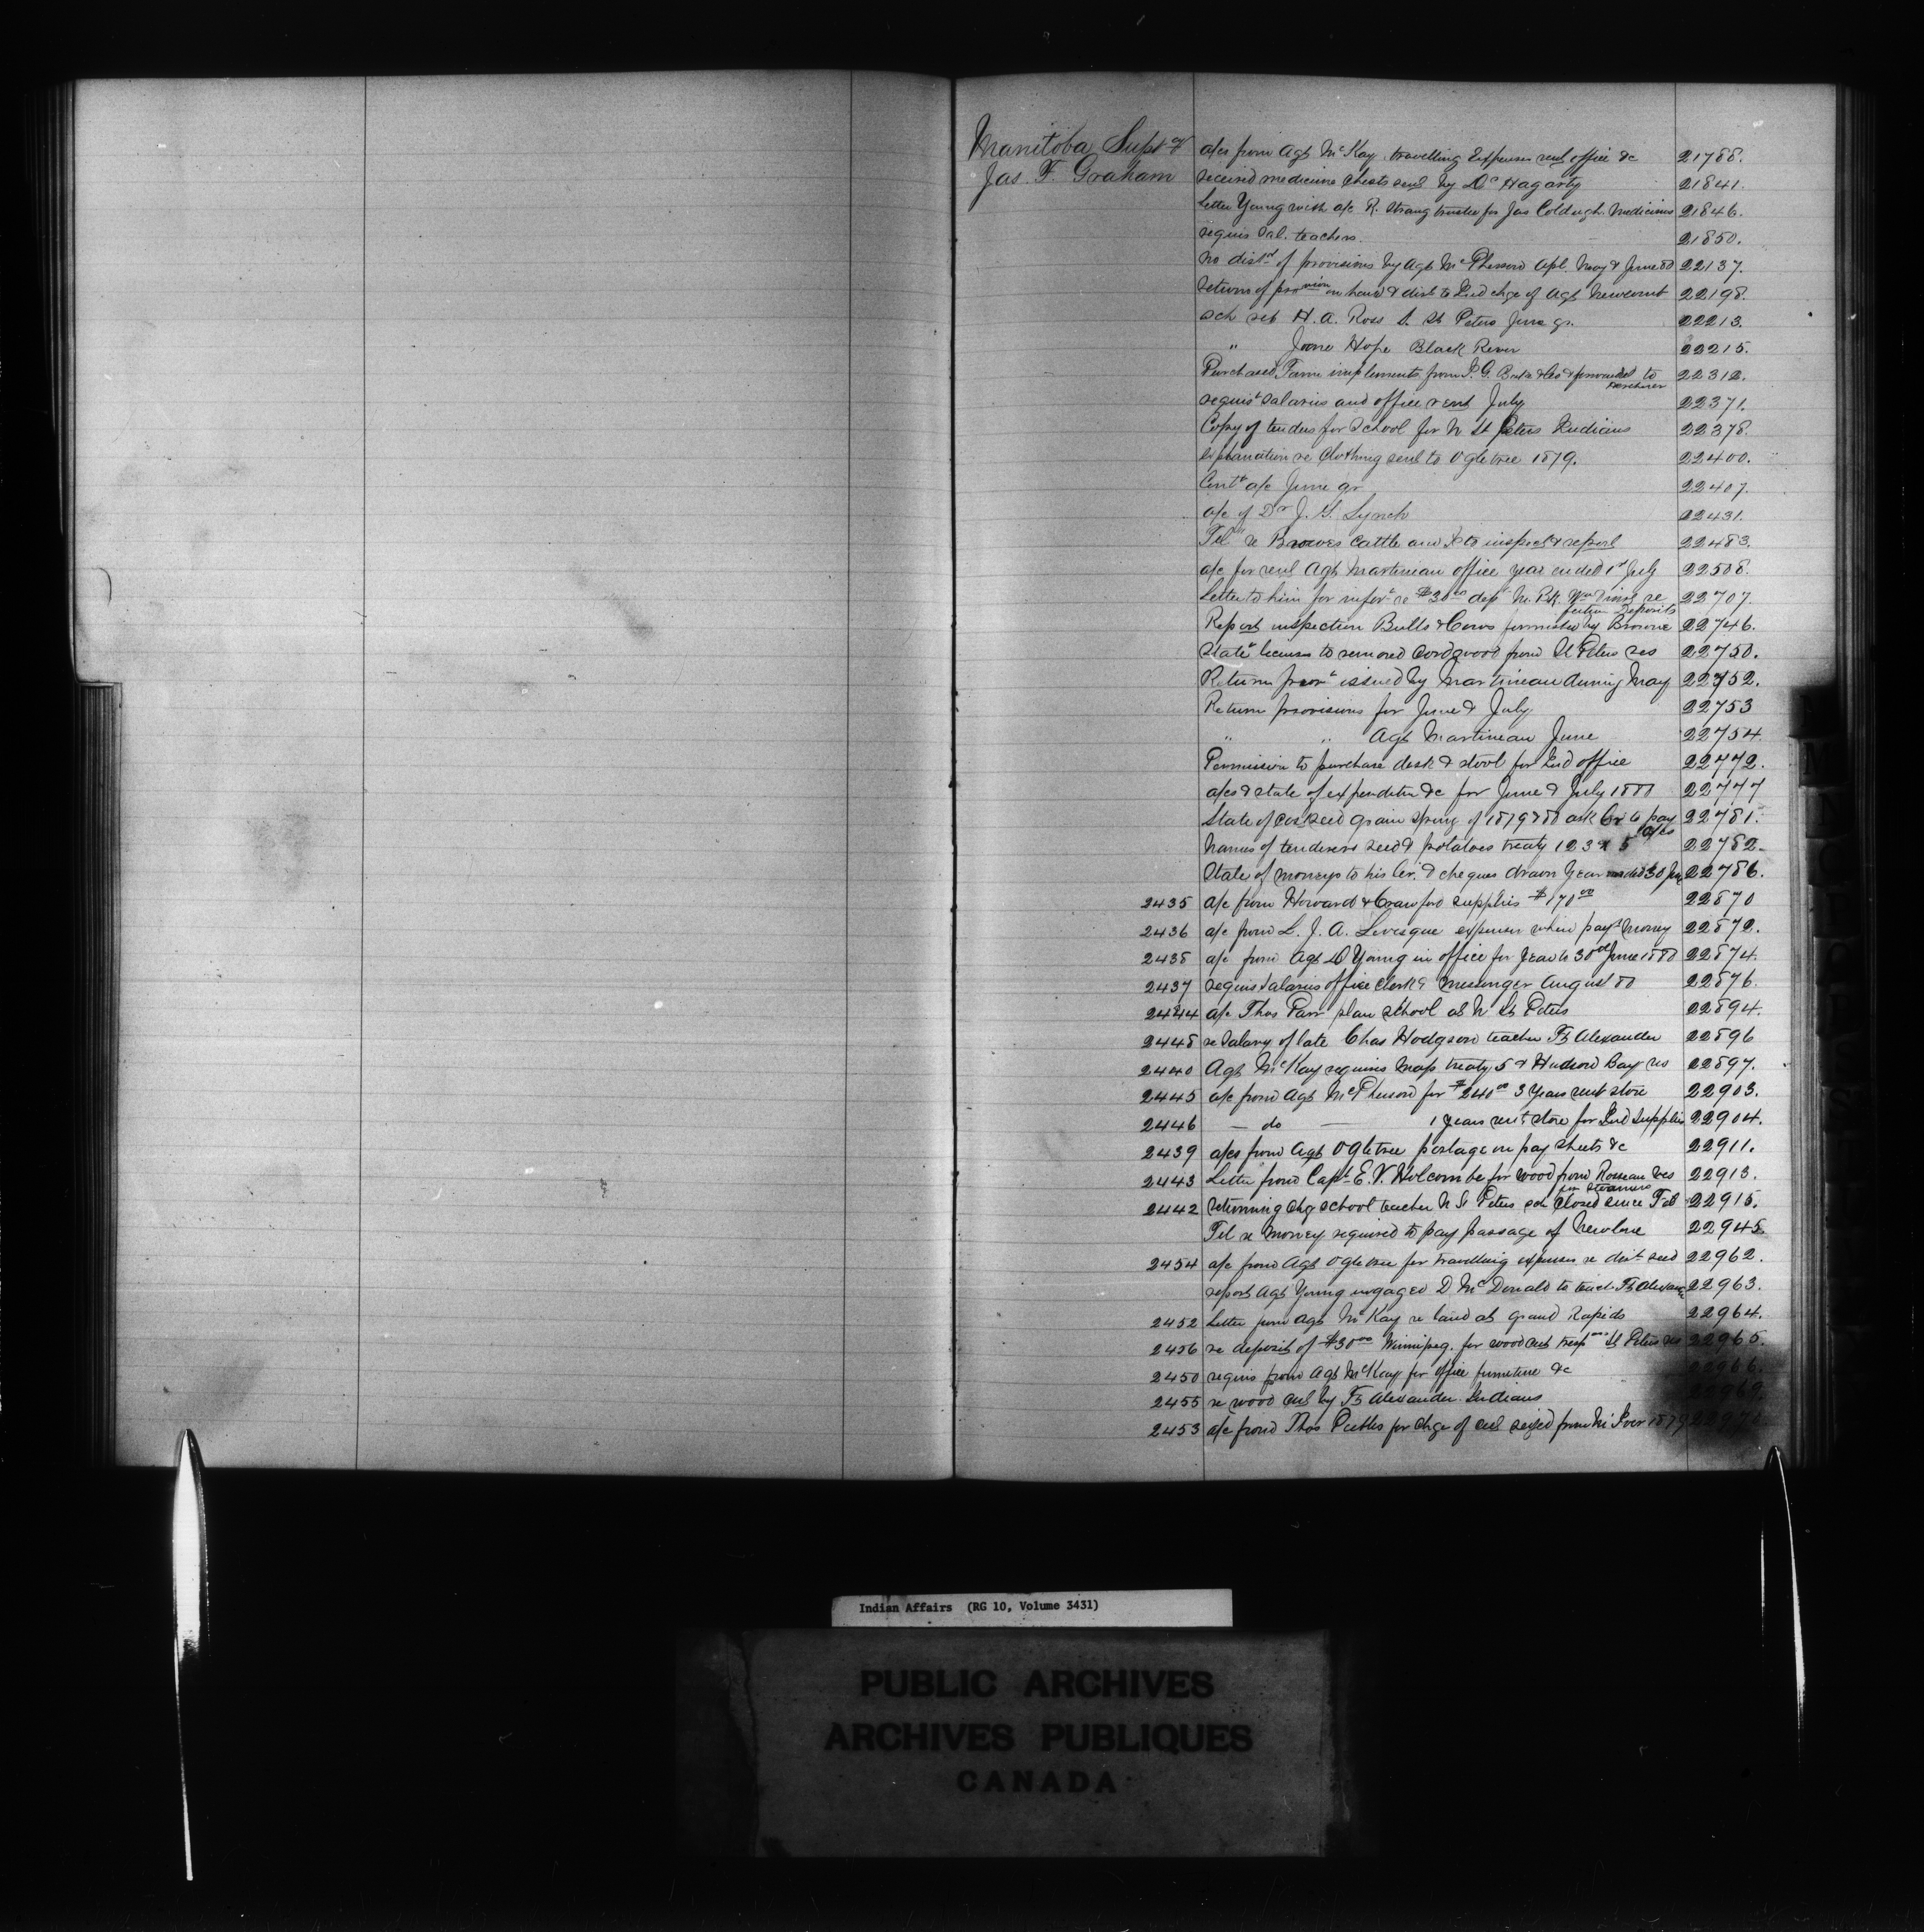 Manitoba Supt of
Jas. F. Graham
a/cs from Agt McKay travelling Expenses rent office &c 21788.
received medicine chests sent by Dr Hagarty 21841.
Letter Young with a/c R. Strang trustee for Jas Coldugh. Medicines 21846.
requis Sal. teachers. 21850.
no distn of provisions by Agt McPherson Apl. May & June 80 22137.
return of provision on hand & dist to Ind chge of Agt Newcomb 22198.
Sch ret H. A. Ross S. St Peters June qr. 22213.
" Jane Hope Black River 22215.
Purchased Farm implements from & forwarded to 22312.
requist salaries and office rent July 22371.
Copy of tenders for School for N St Peters Indians 22378.
explanation re Clothing sent to Ogletree 1879. 22400.
Contt a/c June qr 22407.
a/c of Dr J. S. Lynch 22431.
Tel re Brownes cattle and to inspect & report 22483.
a/c for rent Agt Martineau office year ended 1st July 22508.
Letter to him for infort re $30 00 dept M. Bk. re 22707.
deposits
Report inspection Bulls & Cows furnished by Browne 22746.
Statet licenses to removed Cordwood from St Peters res 22750.
Return provt issued by Martineau during May 22752.
Return provisions for June & July 22753
" " Agt Martineau June 22754.
Permission to purchase desk & stool for Ind office 22772.
a/cs & state of expenditure &c for June & July 1880 22777
State of cost seed grain spring of 1879 & 80 ask Cr to pay 22781.
a/cs
Names of tenderers seed & potatoes treaty 1 2 3 & 5 22782
State of moneys to his Cr. & cheques drawn Year ended 30 June 22786.
2435 a/c from Howard & Crawford supplies $170 00 22870
2436 a/c from L. J. A. Levesque expenses when payt money 22872.
2438 a/c from Agt D Young in office for Year to 30th June 1880 22874.
2437 requis salaries office clerk & messenger August 80 22876.
2444 a/c Thos Parr plan school at N St Peters 22894.
2448 re Salary of late Chas Hodgson teacher Ft Alexander 22896
2440 Agt McKay requires map treaty 5 & Hudson Bay res 22897.
2445 a/c from Agt McPherson for $240 00 3 Years rent store 22903.
2446 — do — 1 years rent store for Ind Supplies 22904.
2439 a/cs from Agt Ogletree postage on pay sheets &c 22911.
2443 Letter from Capt E. V. Holcombe for wood from Roseau res 22913.
for steamers
2442 returning chq school teacher N St Peters sch closed since Feb 22915.
Tel re money required to pay passage of Newlove 22945
2454 a/c from Agt Ogletree for travelling expenses re dist seed 22962.
report Agt Young engaged D McDonald to teach Ft Alexandr 22963.
2452 Letter from Agt McKay re land at grand Rapids 22964.
2456 re deposit of $30 00 Winnipeg. for wood cut St Peters res 22965.
2450 requis from Agt McKay for office furniture &c 22966.
2455 re wood cut by Ft Alexander Indians
2453 a/c from Thos Peebles for chge of seized from 1879
Indian Affairs (RG 10, Volume 3431)
PUBLIC ARCHIVES
ARCHIVES PUBLIQUES
CANADA